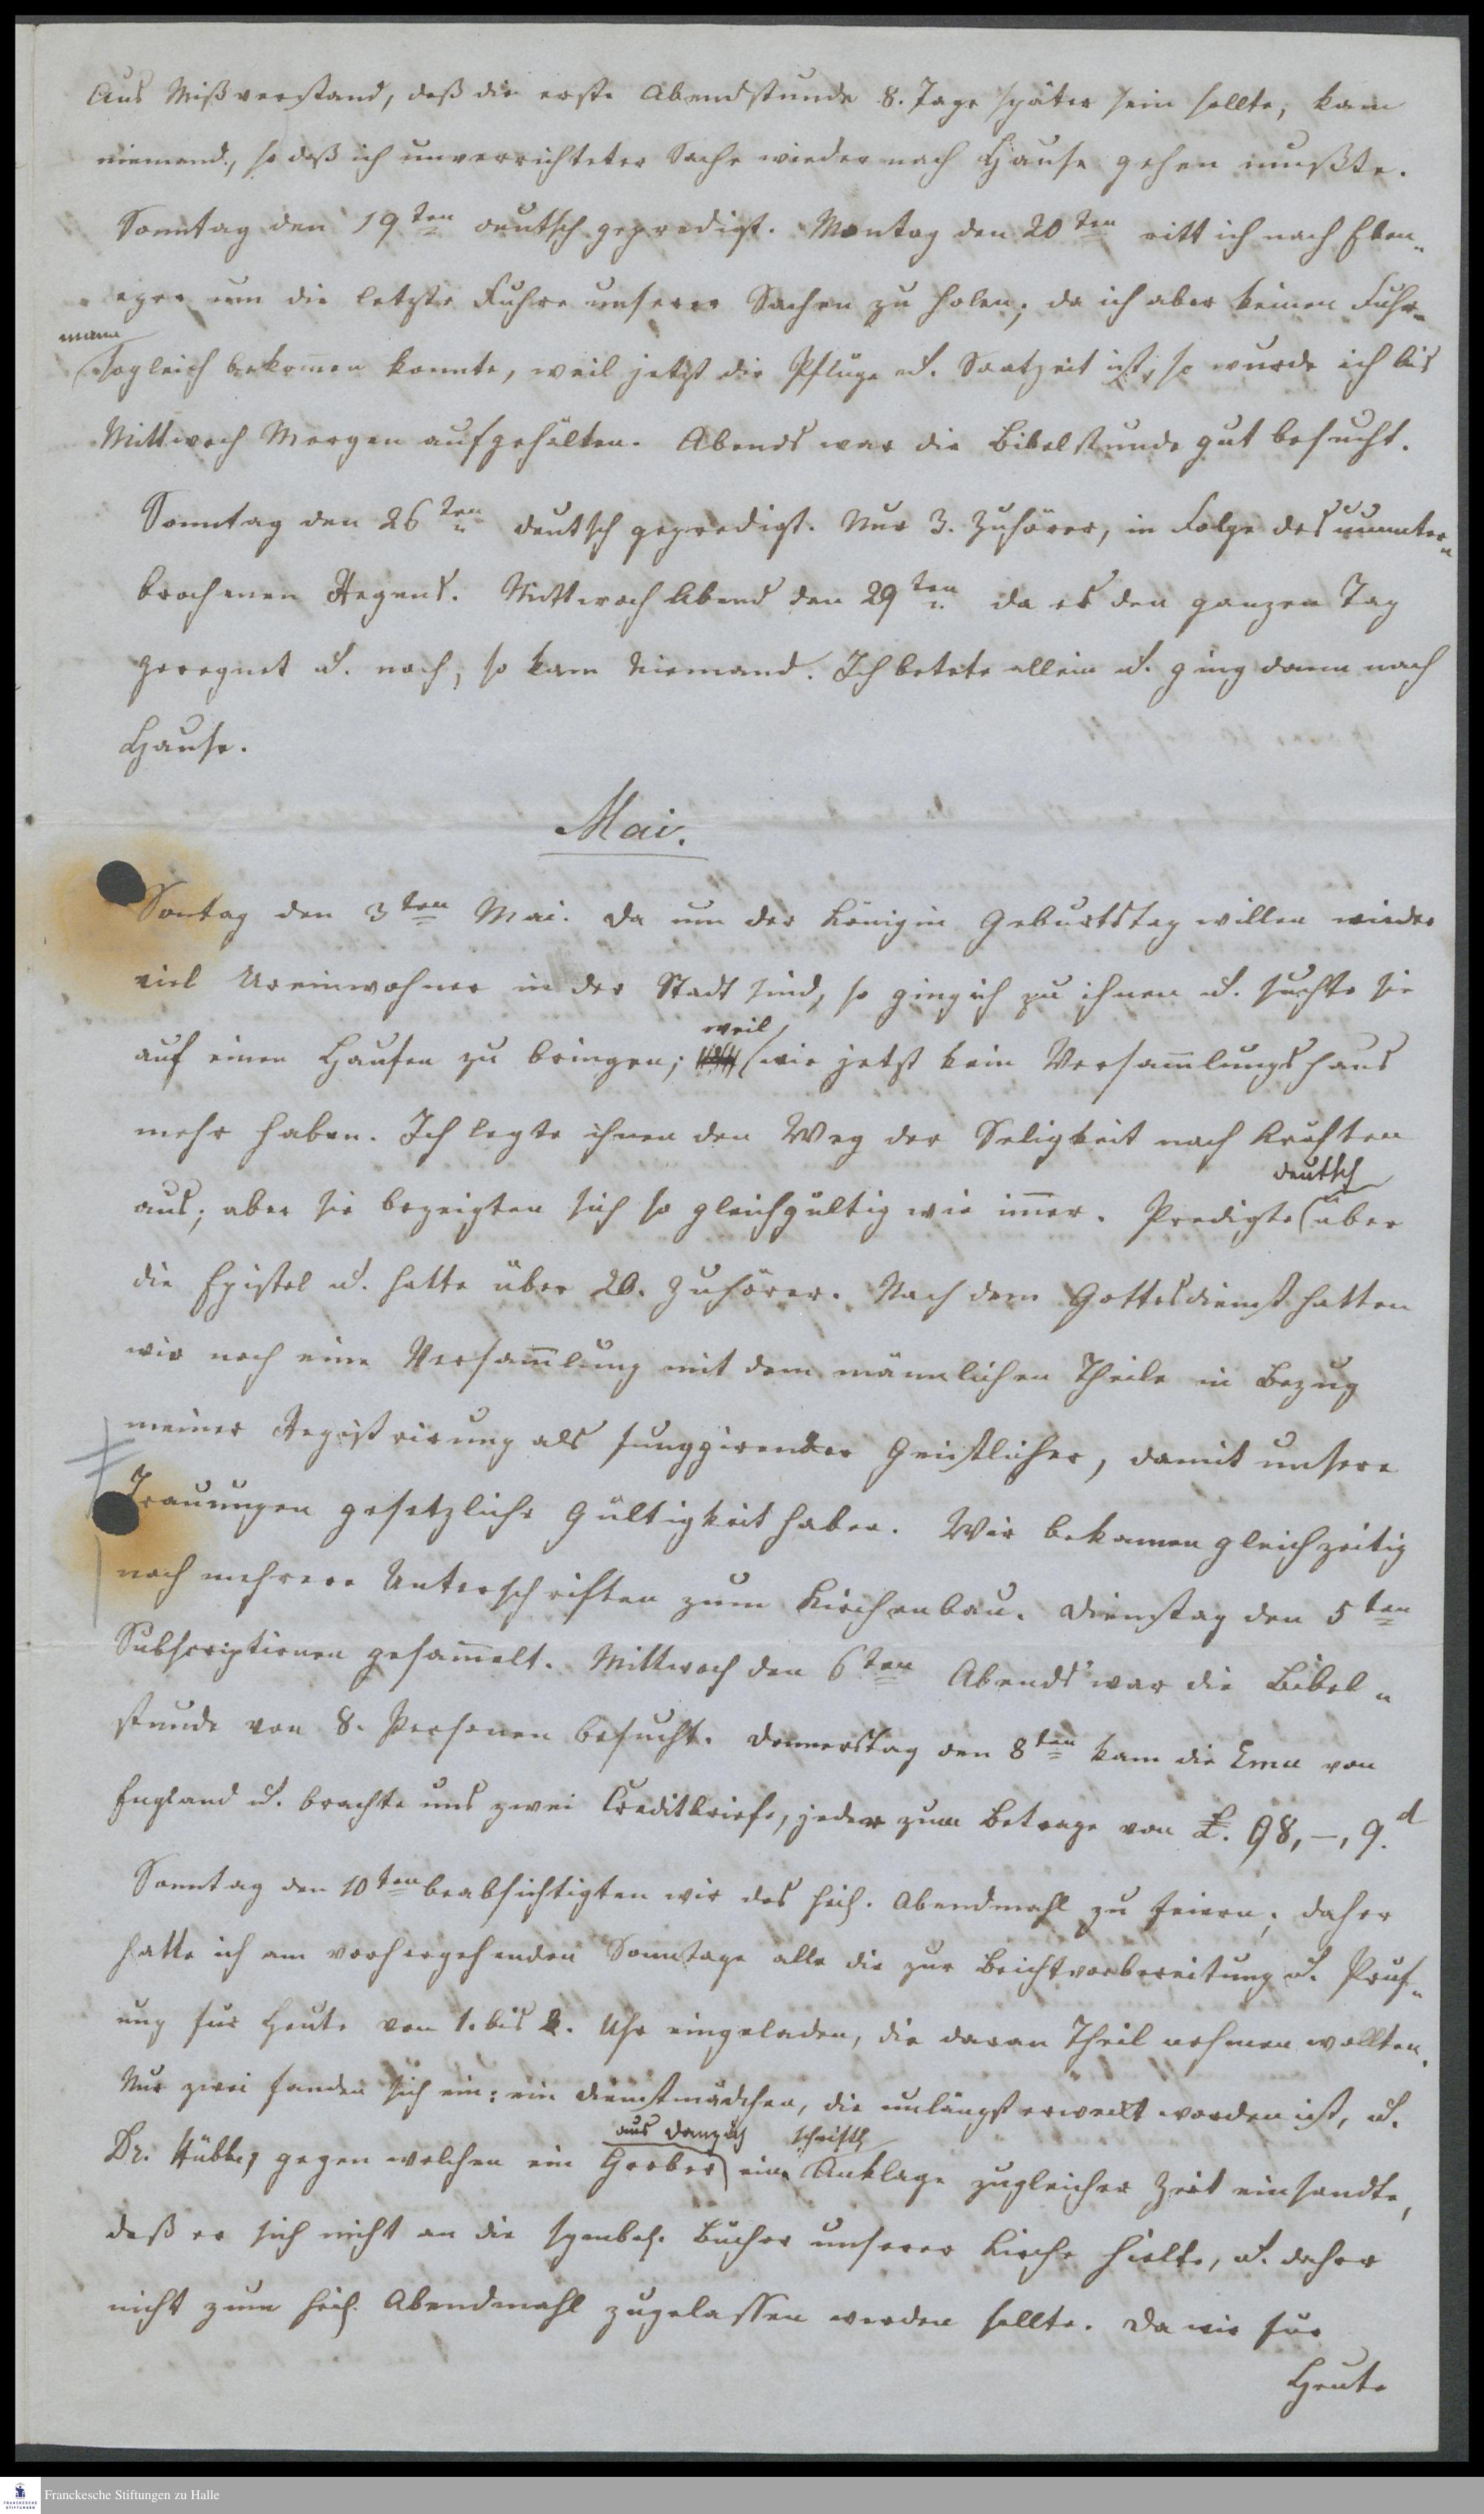 Aus Mißverstand, daß die erste Abendstunde 8. Tage später sein sollte, kam
niemand, so daß ich unverrichteter Sache wieder nach Hause gehen mußte.
Sonntag den 19ten deutsch gepredigt. Montag den 20ten ritt ich nach Eben-
ezer um die letzte Fuhre unserer Sachen zu holen; da ich aber keinen Fuhr-
mann
sogleich bekom̄en konnte, weil jetzt die Pflüge u. Saatzeit ist, so wurde ich bis
Mittwoch Morgen aufgehalten. Abends war die Bibelstunde gut besucht.
Sonntag den 26ten deutsch gepredigt. Nur 3. Zuhörer, in Folge des ununter-
brochenen Regens. Mittwoch Abend den 29ten da es den ganzen Tag
geregnet u. noch, so kam Niemand. Ich betete allein u. ging dann nach
Hause.
Mai.
Sontag den 3ten Mai. Da um der Königin Geburtstag willen wieder
viel Ureinwohner in der Stadt sind, so ging ich zu ihnen u. suchte sie
weil
auf einen Haufen zu bringen; wir jetzt kein Versam̄lungshaus
mehr haben. Ich legte ihnen den Weg der Seligkeit nach Kräften
deutsch
aus; aber sie bezeigten sich so gleichgültig wie im̄er. Predigte über
die Epistel u. hatte über 20. Zuhörer. Nach dem Gottesdienst hatten
wir noch eine Versam̄lung mit dem männlichen Theile in Bezug
meiner Registrirung als fungirender Geistlicher, damit unsere
Trauungen gesetzliche Gültigkeit haben. Wir bekamen gleichzeitig
noch mehrere Unterschriften zum Kirchenbau. Dienstag den 5ten
Subscriptionen gesam̄elt. Mittwoch den 6ten Abends war die Bibel-
stunde von 8. Personen besucht. Donnerstag den 8ten kam die Emu von
England u. brachte uns zwei Creditbriefe, jeder zum Betrage von £. 98,-,9.d
Sonntag den 10ten beabsichtigten wir das heil. Abendmahl zu feiern; daher
hatte ich am vorhergehenden Sonntage alle die zur Beichtvorbereitung u. Prüf-
ung für Heute von 1. bis 2. Uhr eingeladen, die daran Theil nehmen wollten.
Nur zwei fanden sich ein: ein Dienstmädchen, die unlängst erweckt worden ist, u.
aus Danzig schriftl
Dr. Hübbe, gegen welchen ein Gerber eine Anklage zugleicher Zeit einsandte,
daß er sich nicht an die symbol. Bücher unserer Kirche hielte, u. daher
nicht zum heil. Abendmahl zugelassen werden sollte. Da wir für
Heute
Franckesche Stiftungen zu Halle